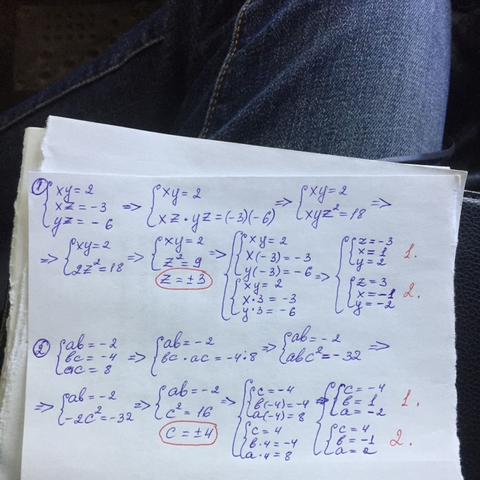 ① { xy = 2
xz = -3
yz = -6 => { xy = 2
xz · yz = (-3)(-6) => { xy = 2
xyz² = 18 =>
=> { xy = 2
2z² = 18 => { xy = 2
z² = 9
z = ±3 => { { xy = 2
x(-3) = -3
y(-3) = -6
{ xy = 2
x·3 = -3
y·3 = -6 => { { z = -3
x = 1
y = 2 1.
{ z = 3
x = -1
y = -2 2.
② { ab = -2
bc = -4
ac = 8 => { ab = -2
bc · ac = -4·8 => { ab = -2
abc² = -32 =>
=> { ab = -2
-2c² = -32 => { ab = -2
c² = 16
c = ±4 => { { c = -4
b(-4) = -4
a(-4) = 8
{ c = 4
b·4 = -4
a·4 = 8 => { { c = -4
b = 1
a = -2 1.
{ c = 4
b = -1
a = 2 2.